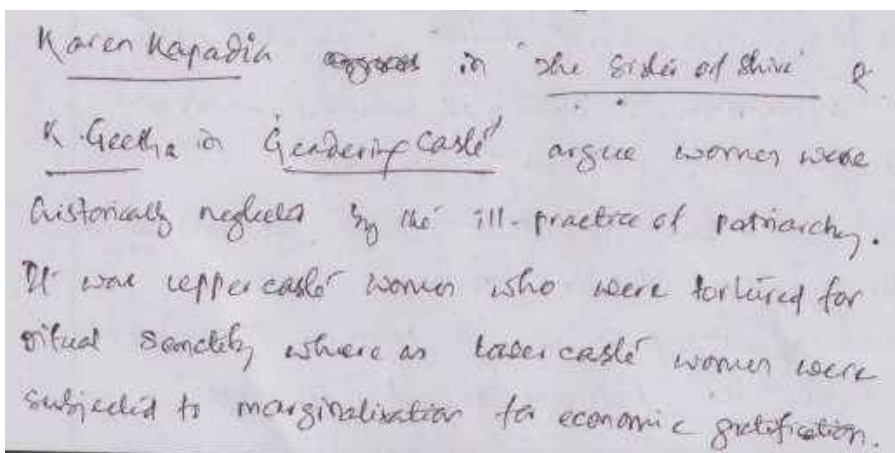 Karen Kapadia in 'The Sister of Shiva' &
K. Geetha in 'Gendering Caste' argue women were
historically neglected by the ill-practice of patriarchy.
It was upper caste women who were tortured for
ritual sanctity where as lower caste women were
subjected to marginalisation for economic gratification.